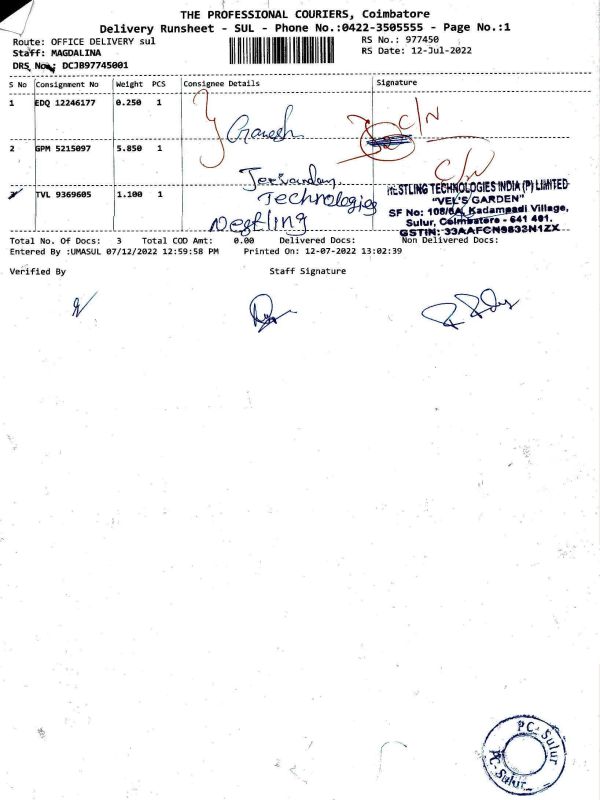 THE PROFESSIONAL COURIERS, Coimbatore
Delivery Runsheet - SUL - Phone No.:0422-3505555 - Page No.:1
Route: OFFICE DELIVERY sul
RS No.: 977450
Staff: MAGDALINA
RS Date: 12-Jul-2022
DRS No.: DCJB97745001
S No Consignment No Weight PCS Consignee Details Signature
1 EDQ 12246177 0.250 1
Ganesh
C/N
2 GPM 5215097 5.850 1
C/N
3 TVL 9369605 1.100 1
Technologies
Nestling
NESTLING TECHNOLOGIES INDIA (P) LIMITED
"VEL'S GARDEN"
SF No: 108/6A, Kadampadi Village,
Sulur, Coimbatore - 641 401.
GSTIN: 33AAFCN9632N1ZX
Total No. Of Docs: 3 Total COD Amt: 0.00 Delivered Docs: Non Delivered Docs:
Entered By :UMASUL 07/12/2022 12:59:58 PM Printed On: 12-07-2022 13:02:39
Verified By Staff Signature
PC-Sulur
PC-Sulur